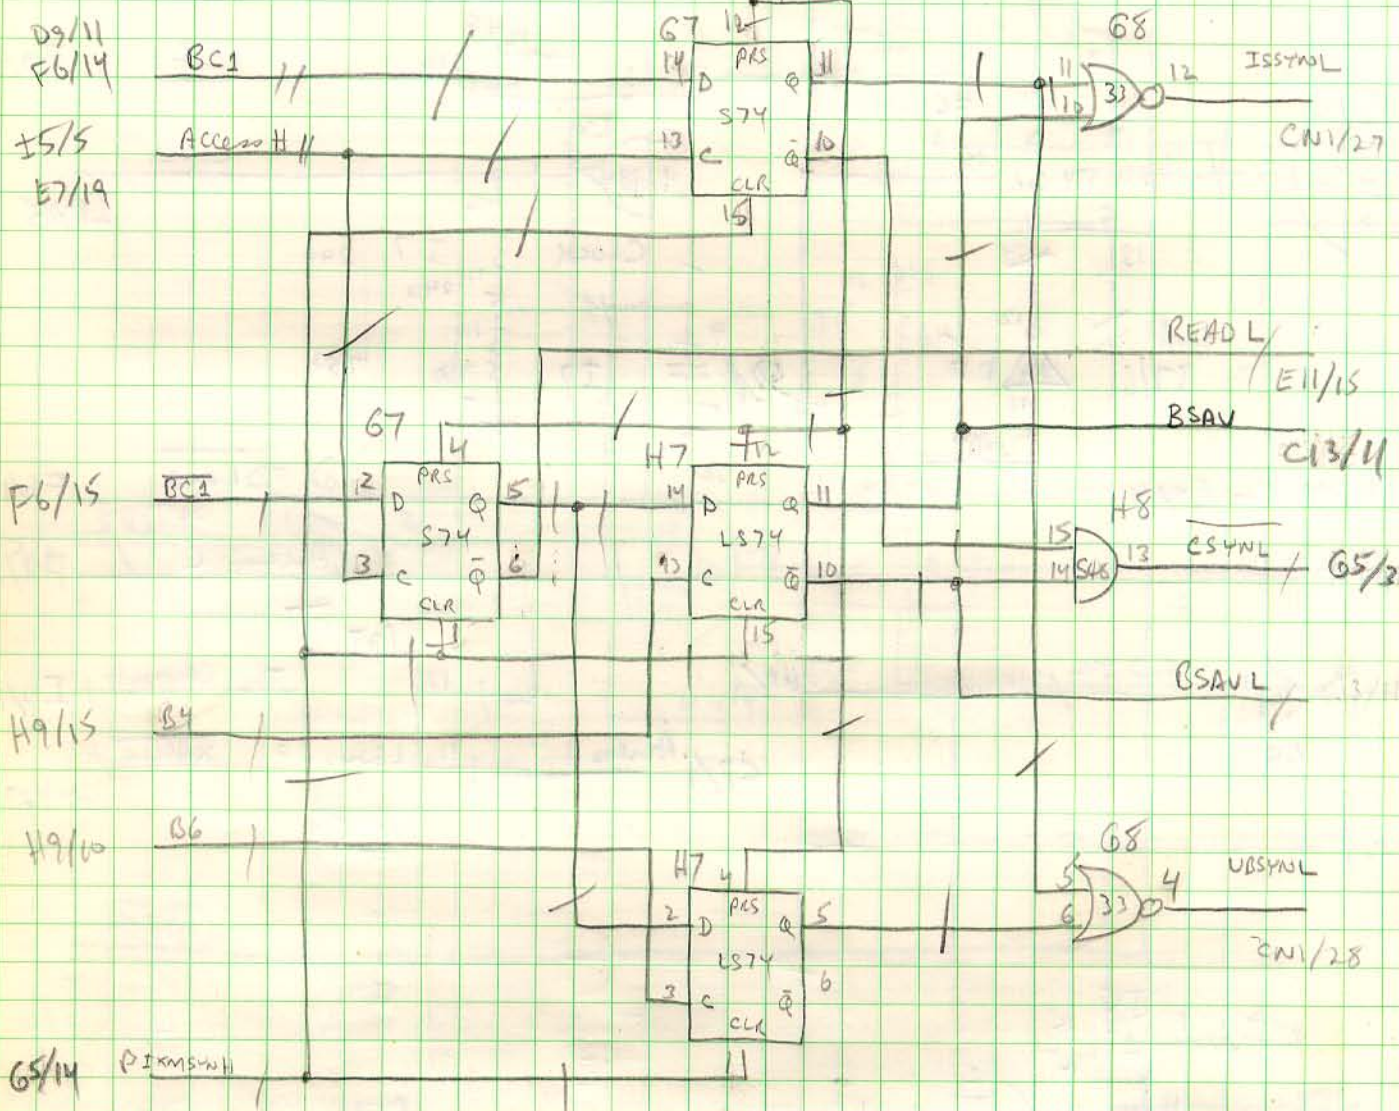 D9/11
F6/14
BC1
I5/5
E7/19
Access H
G7
12
14
D
PRS
Q
11
S74
13
C
Q̅
10
CLR
15
G8
11
10
33
12
ISSYNL
CN1/27
READ L
E11/15
BSAV
C13/11
G7
4
F6/15
B̅C̅1̅
2
D
PRS
Q
5
S74
3
C
Q̅
6
CLR
1
H7
12
14
D
PRS
Q
11
LS74
13
C
Q̅
10
CLR
15
H8
15
14
13
C̅S̅Y̅N̅L̅
G5/3
BSAVL
H9/15
B4
H9/10
B6
H7
4
2
D
PRS
Q
5
LS74
3
C
Q̅
6
CLR
1
G8
5
6
33
4
UBSYNL
CN1/28
G5/14
PIXMSYNH